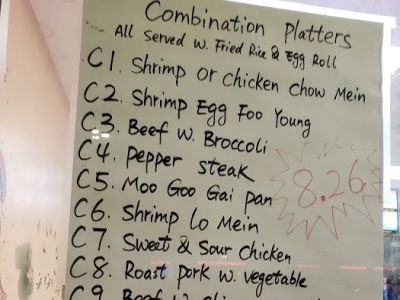 Combination Platters
All Served w. Fried Rice & Egg Roll
C1. Shrimp or Chicken Chow Mein
C2. Shrimp Egg Foo Young
C3. Beef w. Broccoli
C4. Pepper Steak
C5. Moo Goo Gai Pan
8.26
C6. Shrimp Lo Mein
C7. Sweet & Sour Chicken
C8. Roast Pork w. Vegetable
C9. Beef w.